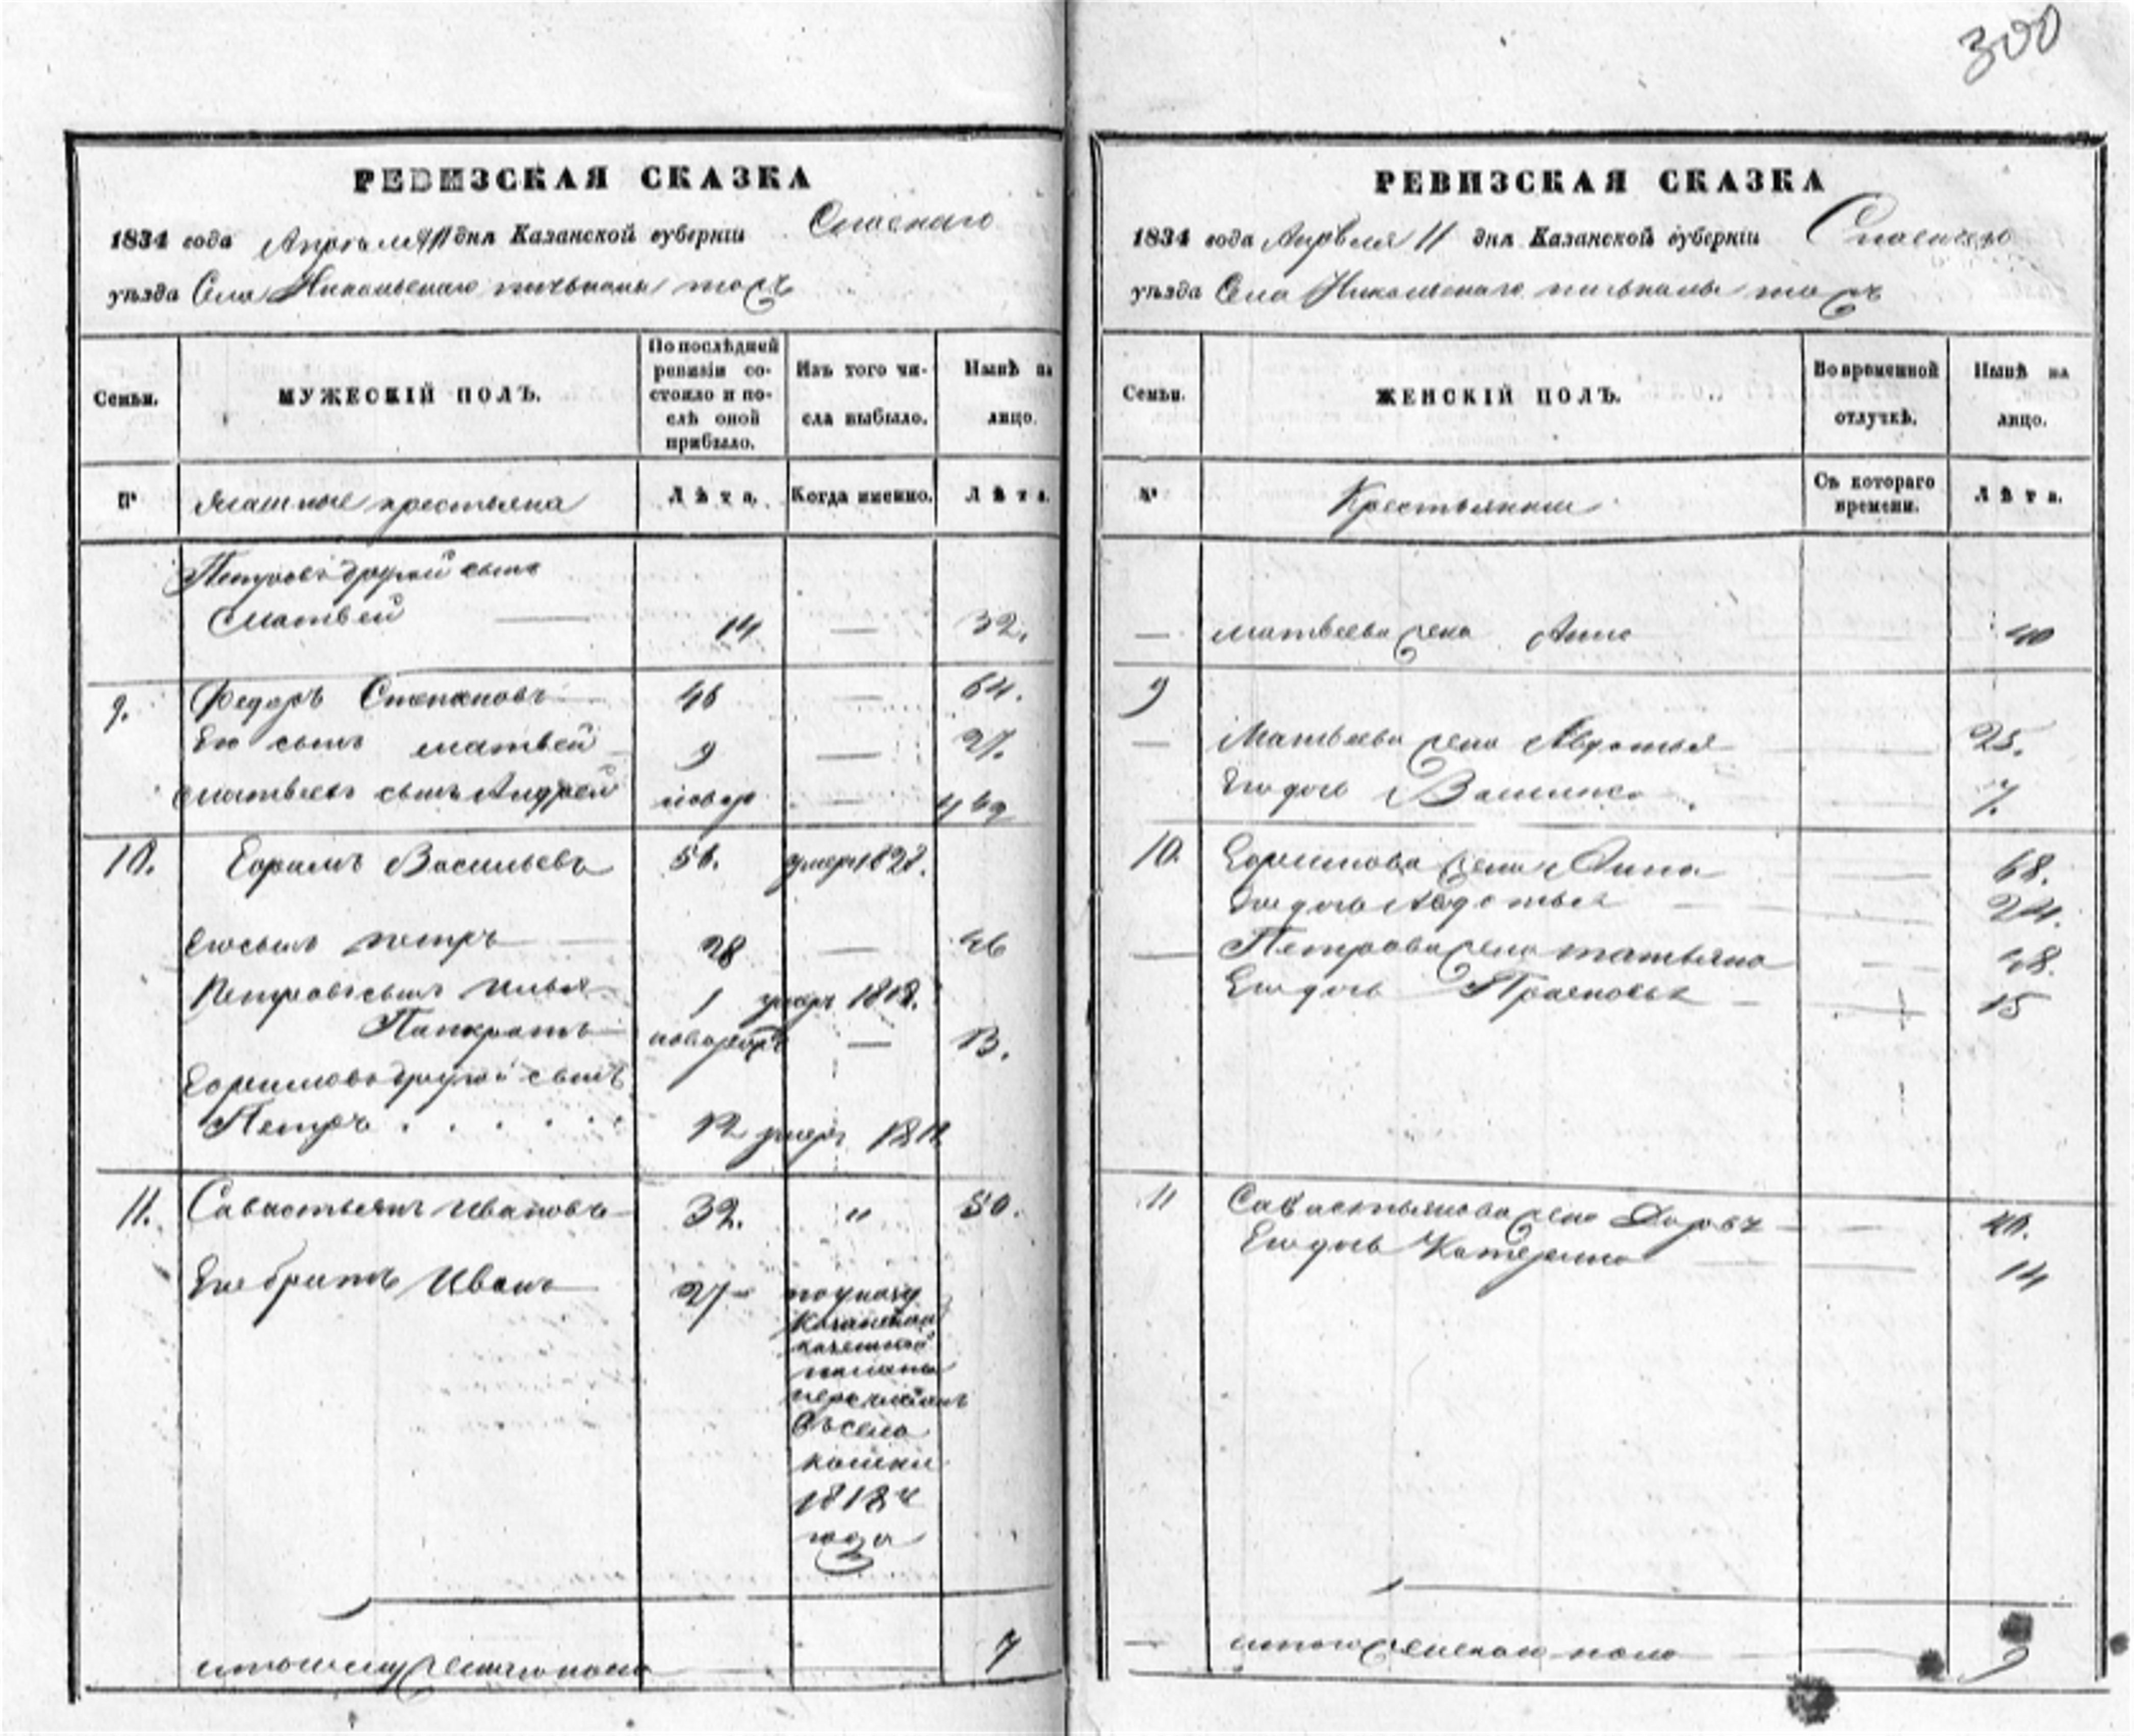 300
РЕВИЗСКАЯ СКАЗКА
1834 года Апреля 11 дня Казанской губерніи Спаскаго
уѣзда Села Никольскаго тожъ
Семьи.
МУЖЕСКІЙ ПОЛЪ.
По послѣдней ревизіи состояло и послѣ оной прибыло.
Изъ того числа выбыло.
Нынѣ на лицо.
№
Ясашные крестьяна
Лѣта.
Когда именно.
Лѣта.
Петровъ другой сынъ
Матвей 14 — 32.
9. Федоръ Степановъ 46 — 64.
Его сынъ матвей 9 — 27.
матвеевъ сынъ Андрей новор —
10. Ефримъ Васильевъ 56. умер 1827.
Его сынъ петръ 28 — 46
Петровъ сынъ илья 1 умеръ 1818.
Панкратъ новорожд — 13.
Ефримовъ другой сынъ
Петръ 12 умеръ 181
11. Савастьянъ Ивановъ 32. " 50.
Его братъ Иванъ 27 по указу
Казанской
казенной
палаты
перечисленъ
въ село
1818 г
года
итого мужескаго пола 7
РЕВИЗСКАЯ СКАЗКА
1834 года Апрѣля 11 дня Казанской губерніи Спаскаго
уѣзда Села Никольскаго тожъ
Семьи.
ЖЕНСКІЙ ПОЛЪ.
Во временной отлучкѣ.
Нынѣ на лицо.
№
Крестьянки
Съ котораго времени.
Лѣта.
— матвеева жена Анна 40
9
— Матвеева жена Авдотья 25.
Его дочь 7.
10. Ефримова жена Анна 68.
Его дочь Авдотья 24.
— Петрова жена татьяна 48.
Его дочь Прасковья 15
11 Савастьянова жена Дарья 40.
Его дочь Катерина 14
— итого женскаго пола 9